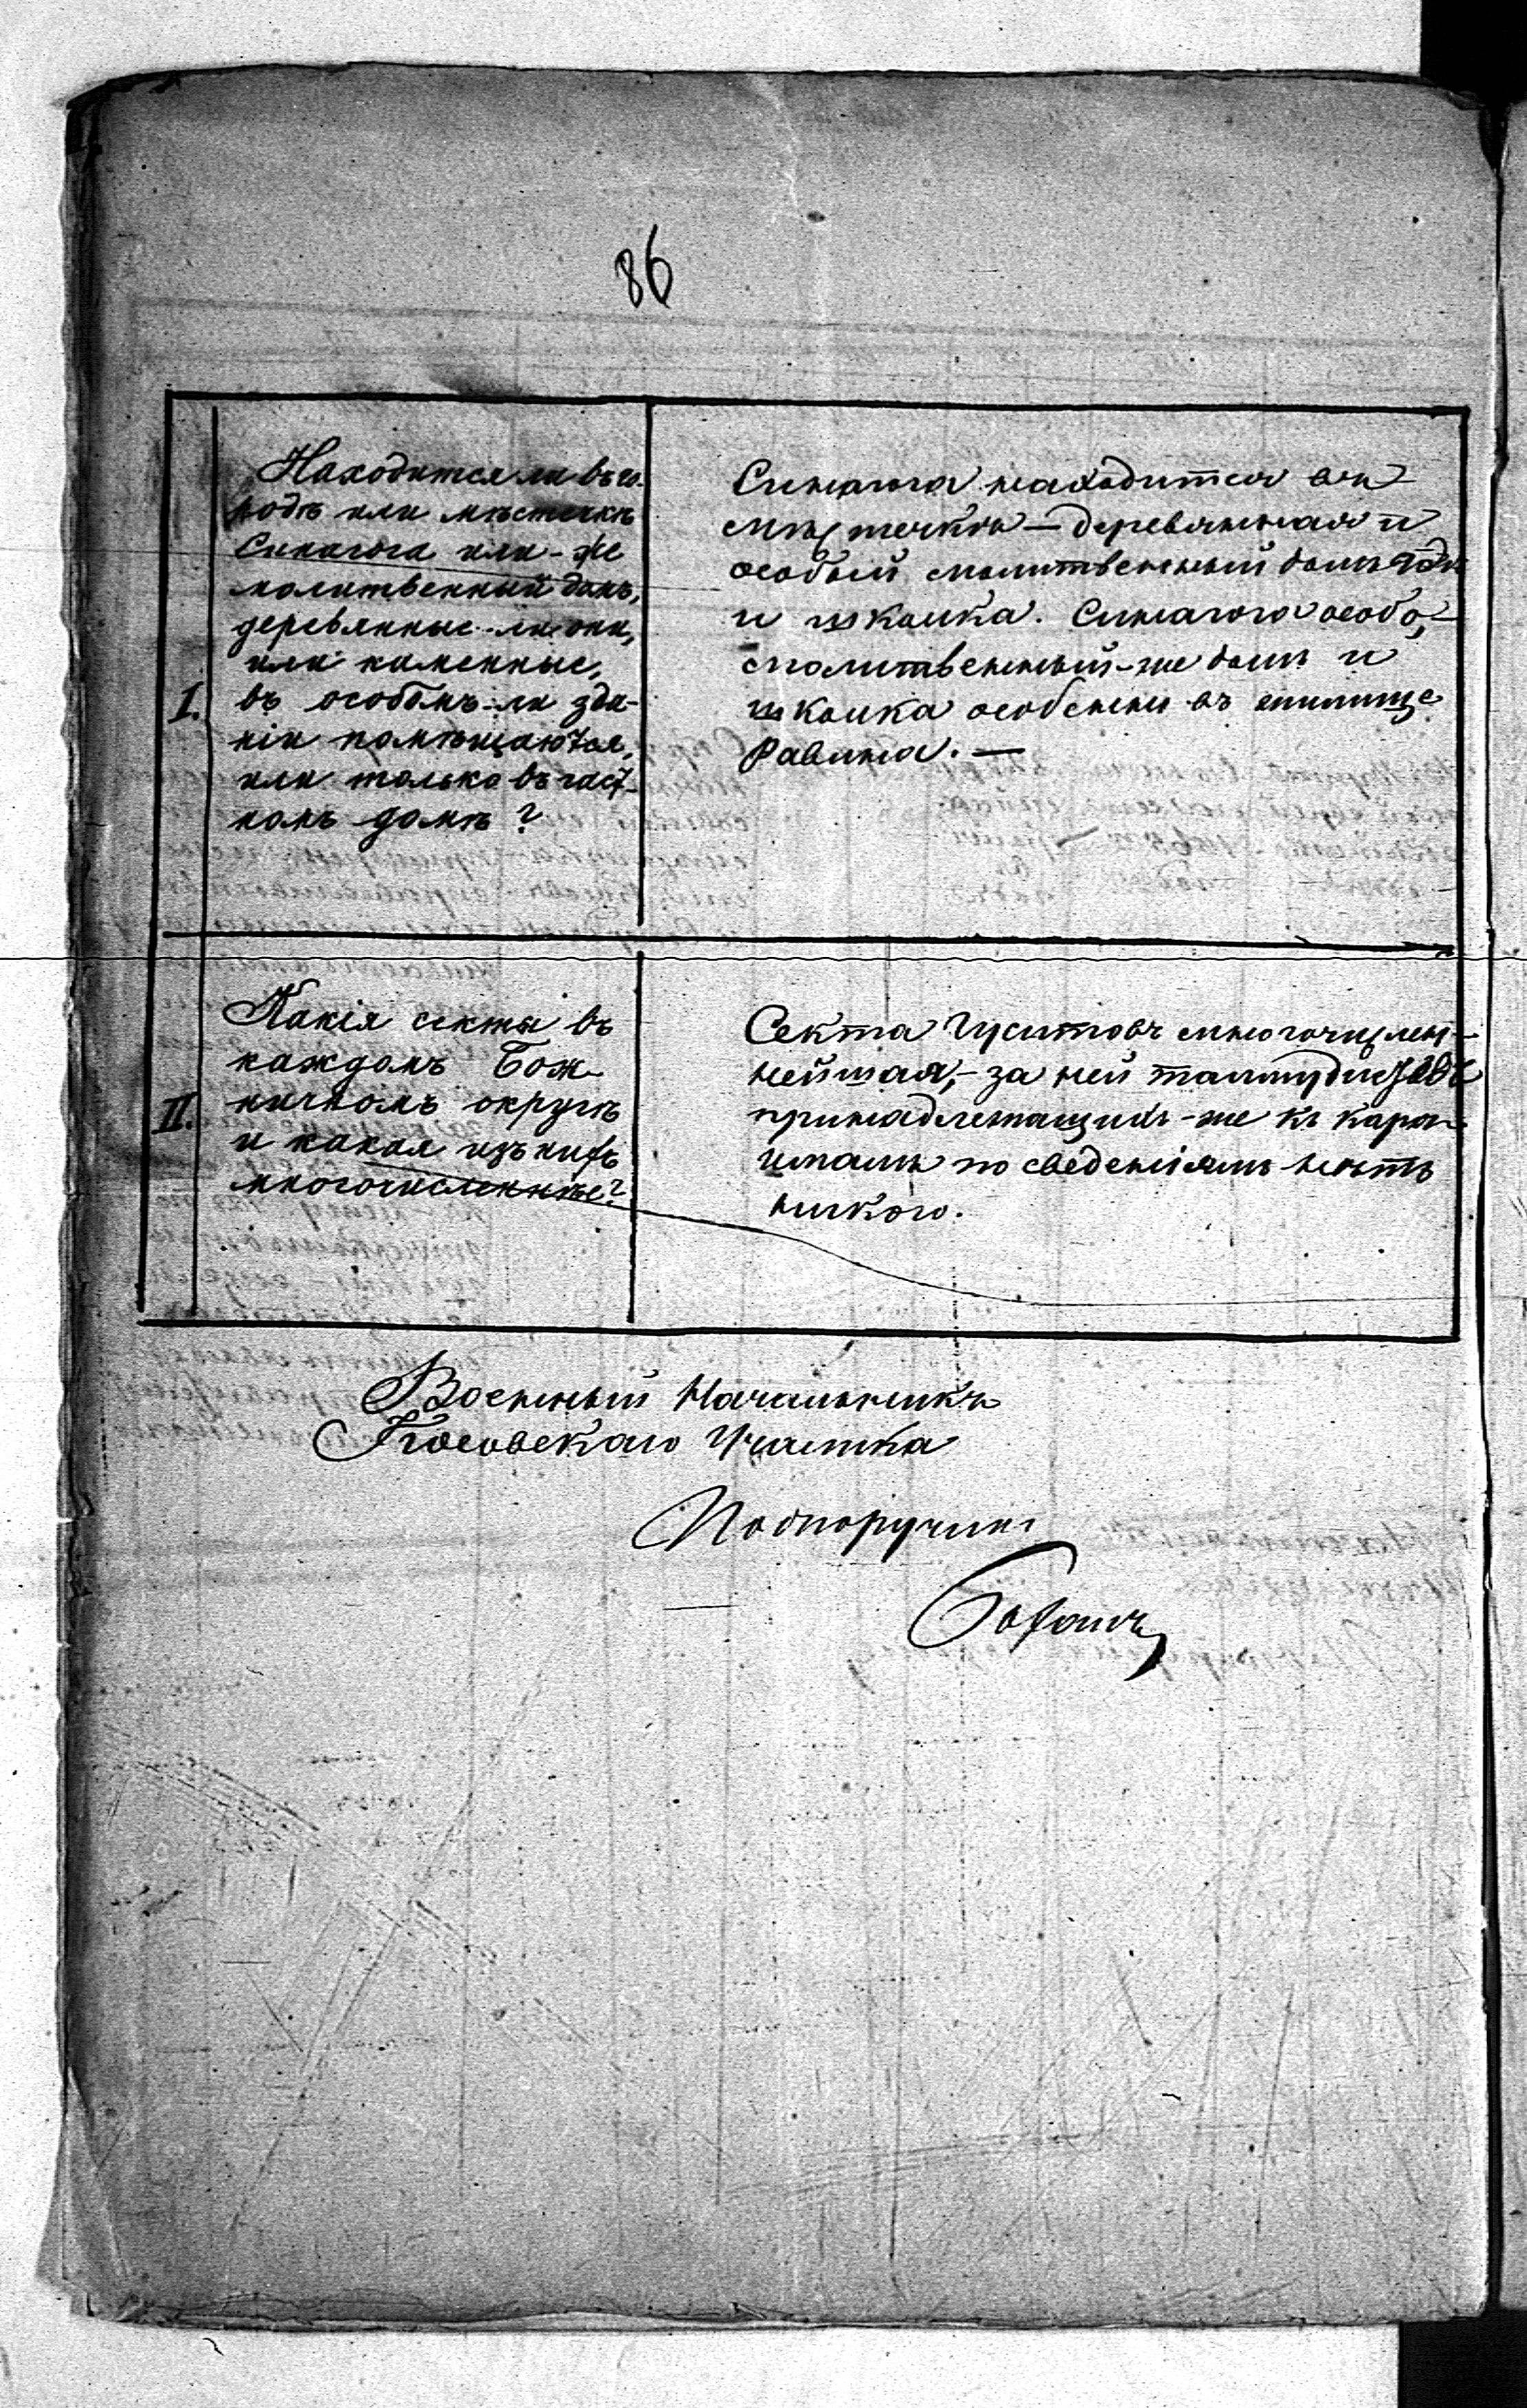 86
Находится ли въ го-
родѣ или мѣстечкѣ
Синагога или-же
молитвенный домъ,
деревянные-ли они,
или каменные,
I.
въ особомъ-ли зда-
нiи помѣщаются,
или только въ част-
номъ домѣ?
Синагога находится въ
мѣстечкѣ — деревянная и
особый молитвенный домъ
и школка. Синагога особо,
молитвенный-же домъ и
школка особенно въ жилище
Равина. —
Какiя секты въ
каждомъ Бож-
II.
ничномъ округѣ
и какая изъ нихъ
многочисленнѣе?
Секта Гуситовъ многочислен-
нейшая, - за ней талмудистовъ
принадлежащихъ-же къ кара-
имамъ по сведенiямъ нѣтъ
никого.
Военный Начальникъ
Косовскаго Участка
Подпоручикъ